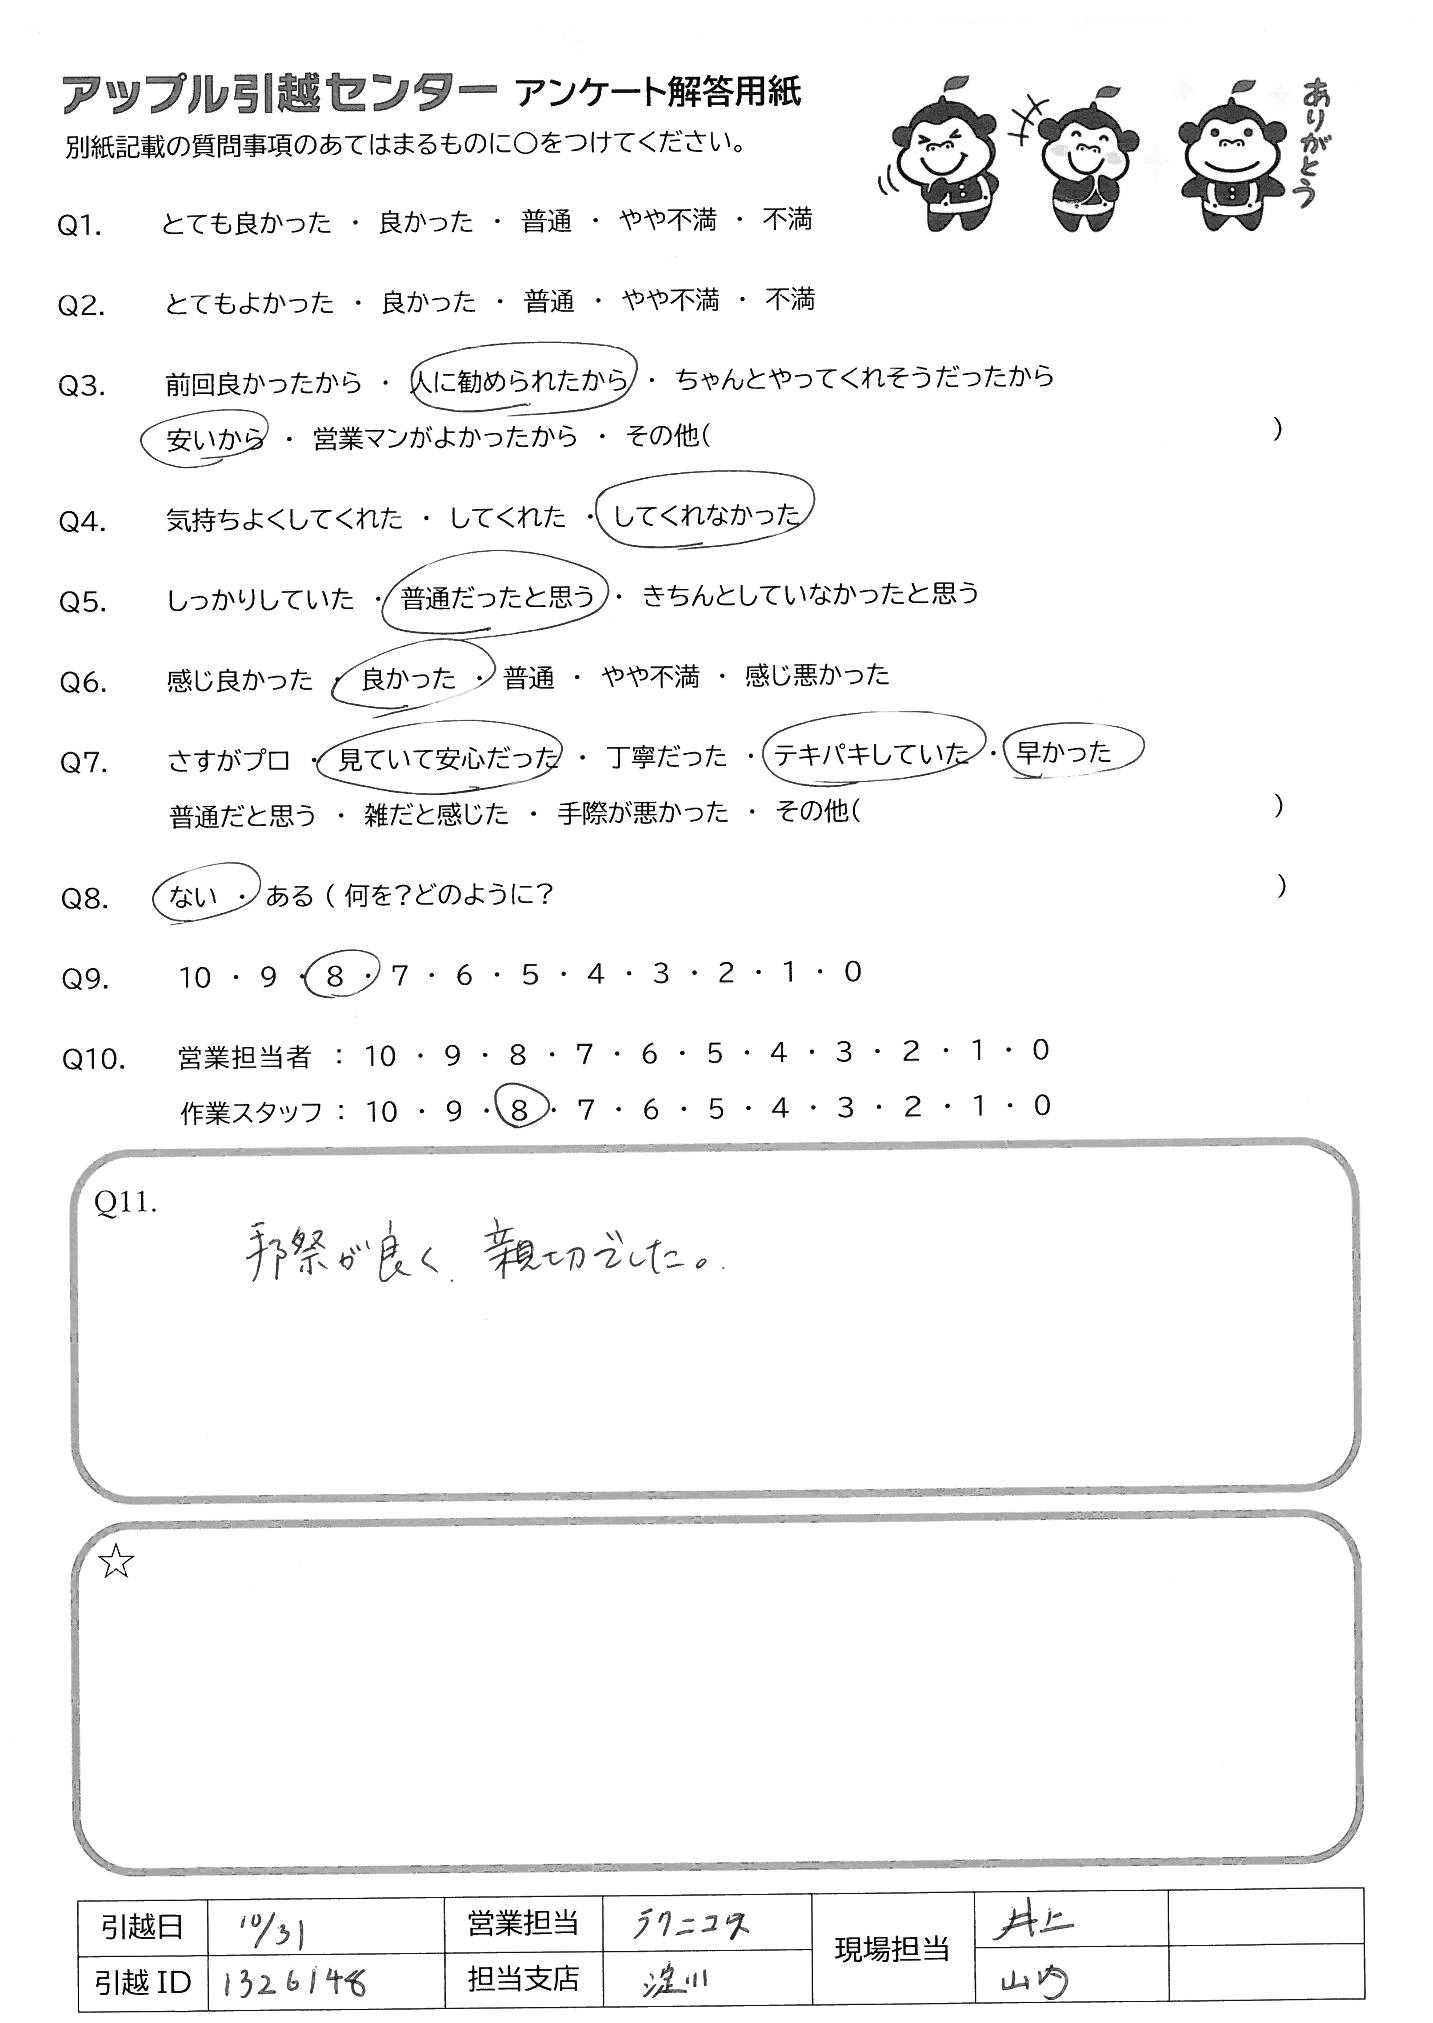 アップル引越センター アンケート解答用紙
ありがとう
別紙記載の質問事項のあてはまるものに○をつけてください。
Q1. とても良かった ・ 良かった ・ 普通 ・ やや不満 ・ 不満
Q2. とてもよかった ・ 良かった ・ 普通 ・ やや不満 ・ 不満
Q3. 前回良かったから ・ 人に勧められたから ・ ちゃんとやってくれそうだったから
安いから ・ 営業マンがよかったから ・ その他( )
Q4. 気持ちよくしてくれた ・ してくれた ・ してくれなかった
Q5. しっかりしていた ・ 普通だったと思う ・ きちんとしていなかったと思う
Q6. 感じ良かった ・ 良かった ・ 普通 ・ やや不満 ・ 感じ悪かった
Q7. さすがプロ ・ 見ていて安心だった ・ 丁寧だった ・ テキパキしていた ・ 早かった
普通だと思う ・ 雑だと感じた ・ 手際が悪かった ・ その他( )
Q8. ない ・ ある ( 何を?どのように? )
Q9. 10 ・ 9 ・ 8 ・ 7 ・ 6 ・ 5 ・ 4 ・ 3 ・ 2 ・ 1 ・ 0
Q10. 営業担当者 : 10 ・ 9 ・ 8 ・ 7 ・ 6 ・ 5 ・ 4 ・ 3 ・ 2 ・ 1 ・ 0
作業スタッフ : 10 ・ 9 ・ 8 ・ 7 ・ 6 ・ 5 ・ 4 ・ 3 ・ 2 ・ 1 ・ 0
Q11.
手際が良く、親切でした。
☆
引越日 10/31 営業担当 テクニコス 現場担当 井上
引越ID 1326148 担当支店 淀川 山内